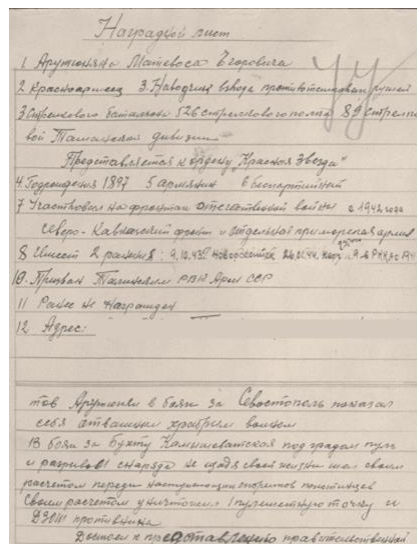 Наградной лист
1 Арутюняна Матевоса Егоровича
2 Красноармеец 3. Наводчик взвода противотанковых ружей
3 Стрелкового батальона 526 стрелкового полка 89 стрелко
вой Таманской дивизии
Представляется к ордену "Красная Звезда"
4. Год рождения 1897 5 армянин 6 беспартийный
7 Участвовал на фронтах отечественной войны с 1942 года
Северо-Кавказский фронт и отдельная приморская армия
8 Имеет 2 ранения: 9.10.43 Новороссийск
10. Призван РВК Арм ССР
11 Ранее не награжден
12 Адрес:
тов Арутюнян в боях за Севастополь показал
себя отважным храбрым воином
В боях за бухту Камышеватская под градом пуль
и разрывов снаряда не щадя своей жизни шел своим
расчетом впереди наступающих
Своим расчетом уничтожил 1 пулеметную точку и
ДЗОТ противника
Достоен к представлению правительственной